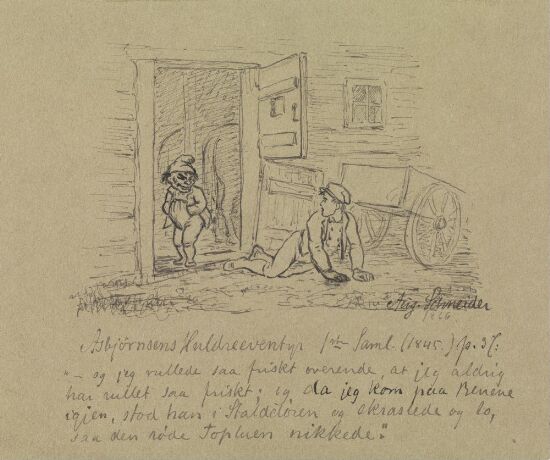 Aug. Schneider
Asbjörnsens Huldreeventyr 1ste Saml. (1845.) p. 37:
"— og jeg rullede saa friskt overende, at jeg aldrig
har rullet saa friskt; og da jeg kom paa Benene
igjen, stod han i Stalddören og skraslede og lo,
saa den röde Topluen nikkede."